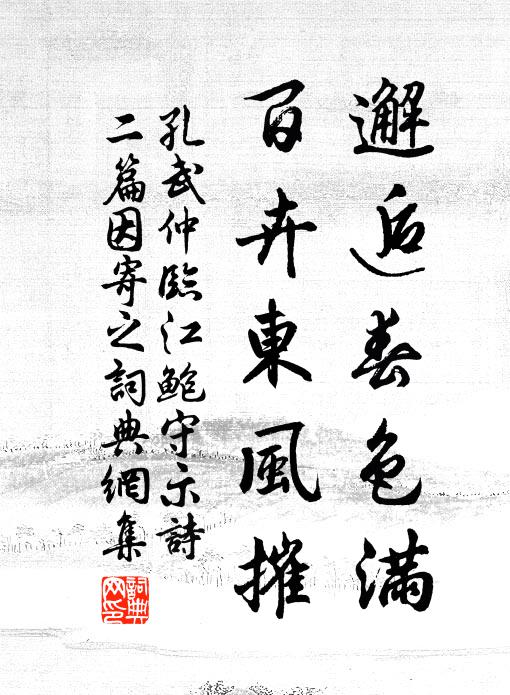 邂逅春色滿
百卉東風摧
孔武仲臨江鮑守示詩
二篇因寄之詞典網集
詞典網印